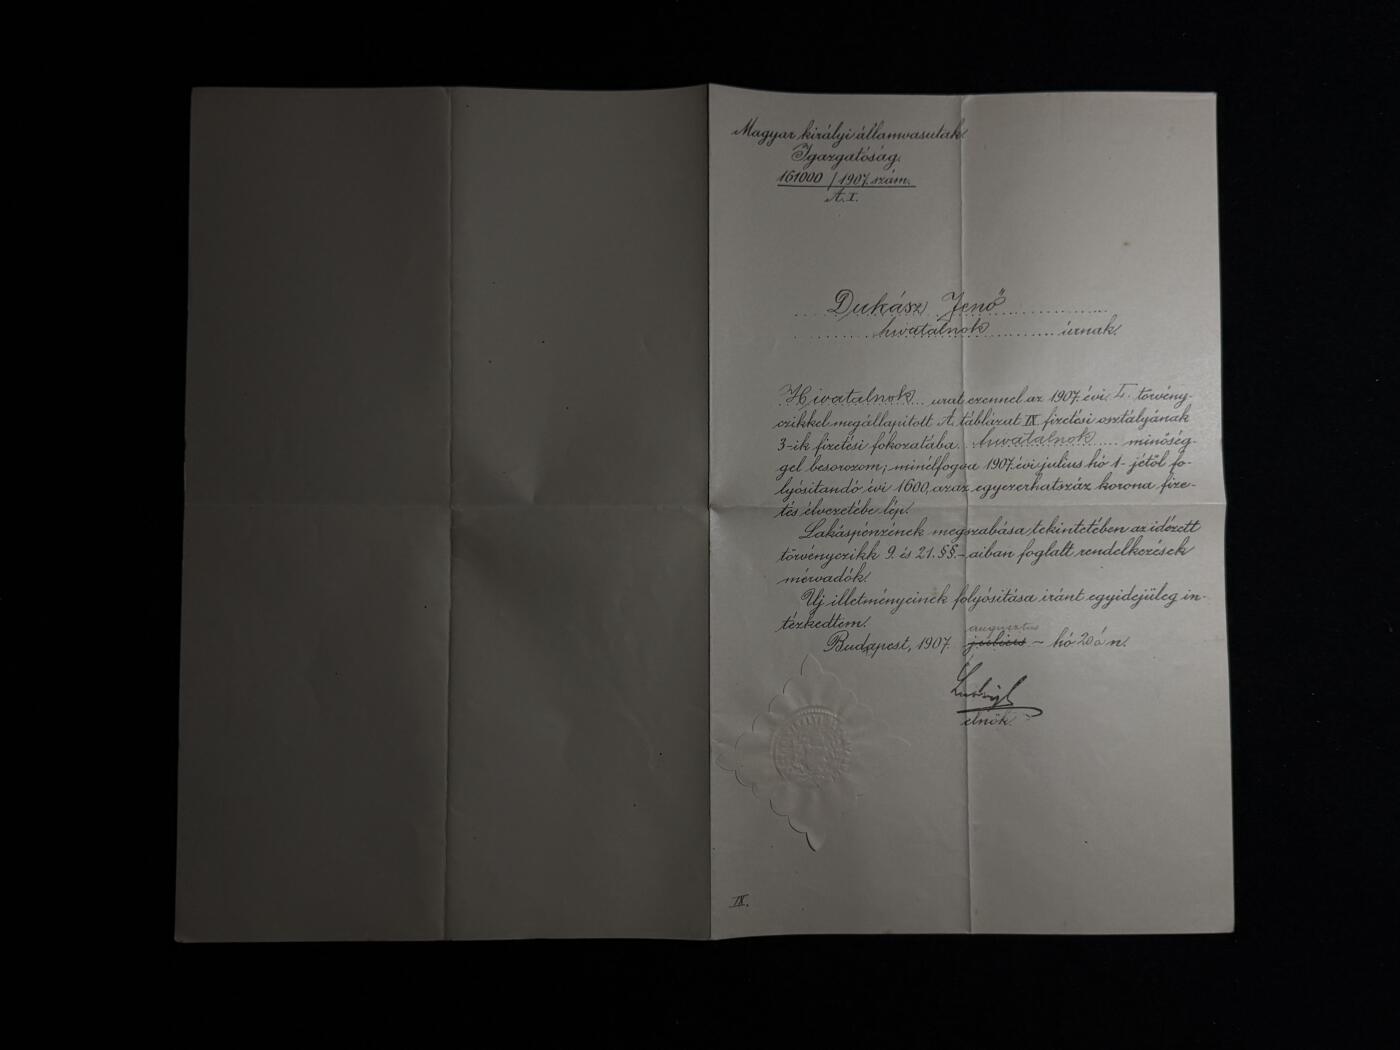 Magyar királyi államvasutak.
Igazgatóság.
161000 / 1907. szám.
A. I.
Dukász Jenő
hivatalnok úrnak.
Hivatalnok urat ezennel az 1907. évi L. törvény-
czikkel megállapitott A. táblázat IX fizetési osztályának
3-ik fizetési fokozatába hivatalnok minőség-
gel besorozom; minélfogva 1907. évi julius hó 1-jétől fo-
lyósitandó évi 1600, azaz egyezerhatszáz korona fize-
tés élvezetébe lép.
Lakáspénzének megszabása tekintetében az idézett
törvényczikk 9. és 21. §§.-aiban foglalt rendelkezések
mérvadók.
Uj illetményeinek folyósitása iránt egyidejüleg in-
tézkedtem.
augusztus
Budapest, 1907. julius - hó 20án.
elnök.
IX.